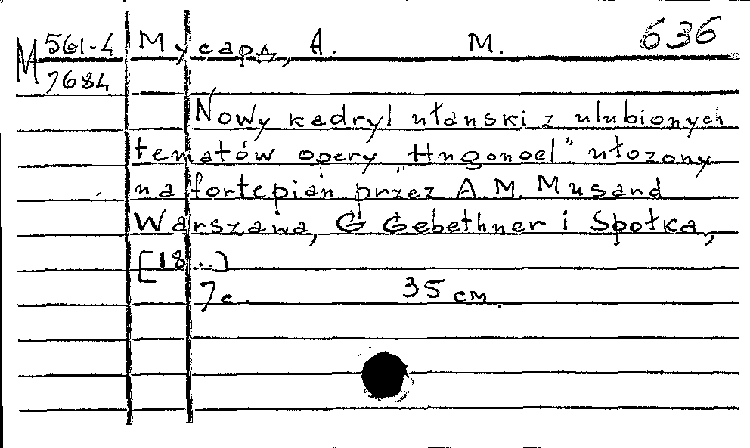 М 561-4 Мусард, А. М. 636
7684
Nowy kadryl ułanski z ulubionych
tematów opery "Hugonoci" ułozony
na fortepian przez A. M. Musard
Warszawa, G Gebethner i Społka,
[18..]
7 с. 35 см.